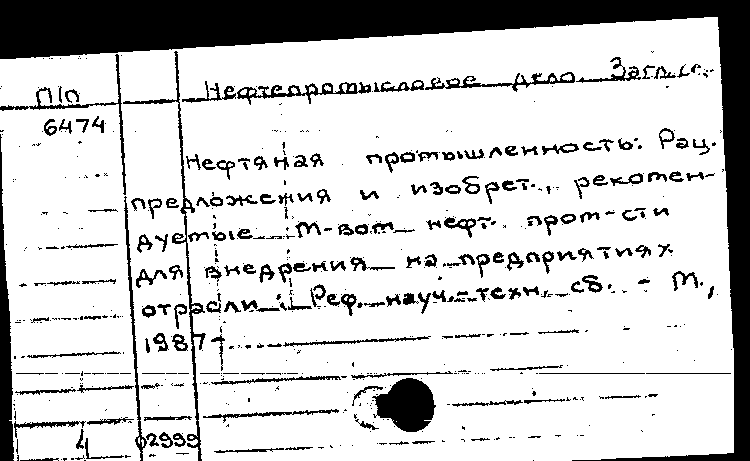 П/п
Нефтепромысловое дело. Загл. см.
6474
Нефтяная промышленность: Рац.
предложения и изобрет., рекомен-
дуемые М-вом нефт. пром-сти
для внедрения на предприятиях
отрасли : Реф. науч.-техн. сб. - М.,
1987-
4 02999